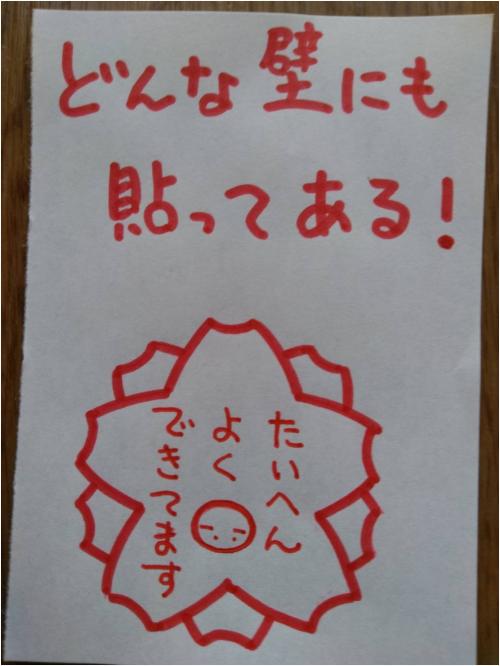 どんな壁にも
貼ってある!
たいへん
よく
できてます